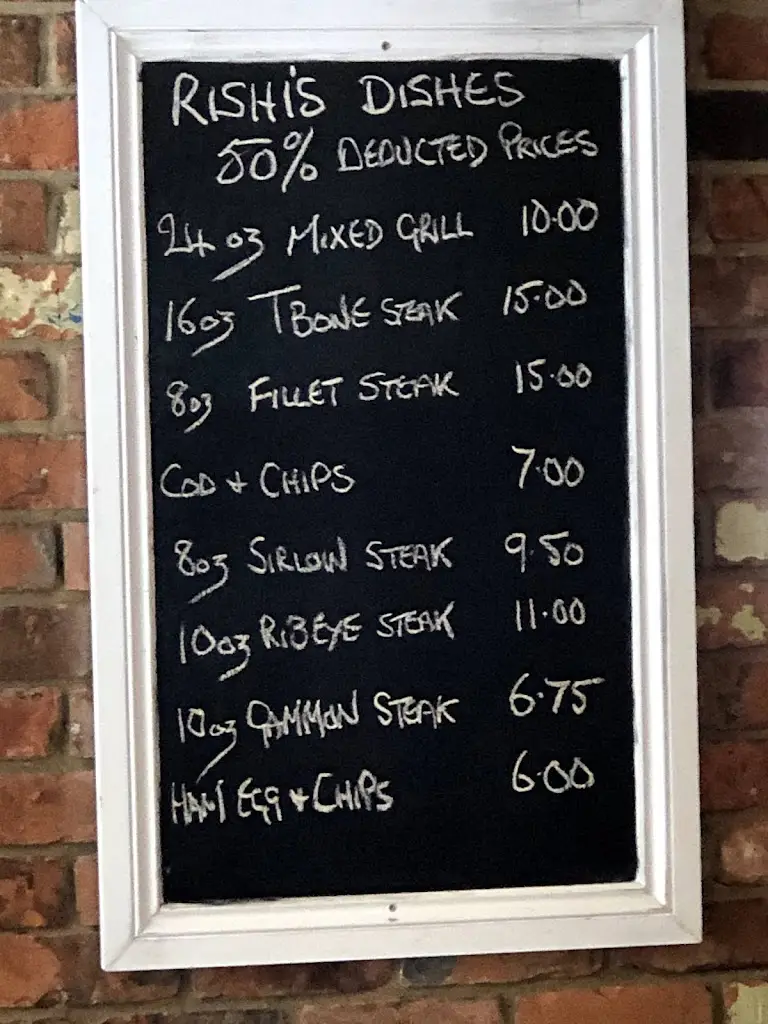 RISHI'S DISHES
50% DEDUCTED PRICES
24oz MIXED GRILL 10.00
16oz T BONE STEAK 15.00
8oz FILLET STEAK 15.00
COD + CHIPS 7.00
8oz SIRLOIN STEAK 9.50
10oz RIBEYE STEAK 11.00
10oz GAMMON STEAK 6.75
HAM EGG + CHIPS 6.00